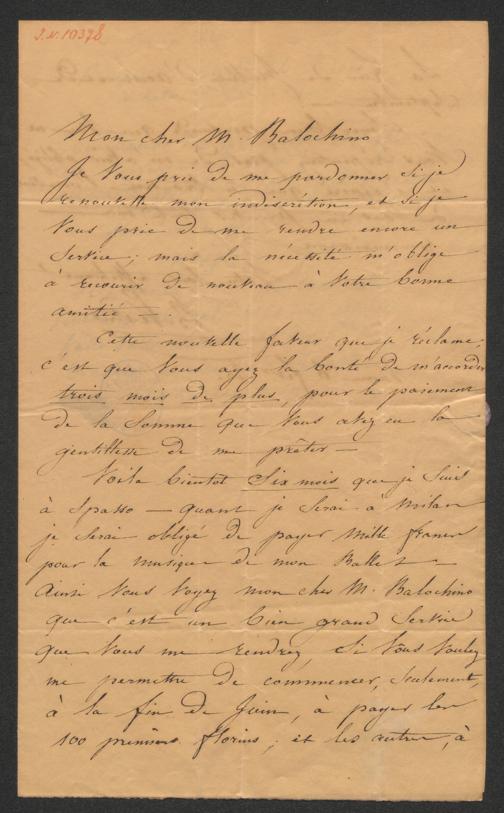 J.N. 10378
Mon cher M. Balochino
Je vous prie de me pardonner si je
renouvelle mon indiscrétion, et si je
vous prie de me rendre encore un
service; mais la nécéssité m'oblige
à recourir de nouveau à votre bonne
amitié —.
Cette nouvelle faveur que je réclame,
c'est que vous ayez la bonté de m'accorder
trois mois de plus, pour le paiement
de la somme que vous avez eu la
gentillesse de me prêter —
Voila bientot six mois que je suis
à spasso — quant je serai a Milan
je serai obligé de payer mille francs
pour la musique de mon Ballet —
Ainsi vous voyez mon cher M. Balochino
que c'est un bien grand service
que vous me rendrez, si vous voulez
me permettre de commencer, seulement,
à la fin de Juin, à payer les
100 premiers florins; et les autres, à